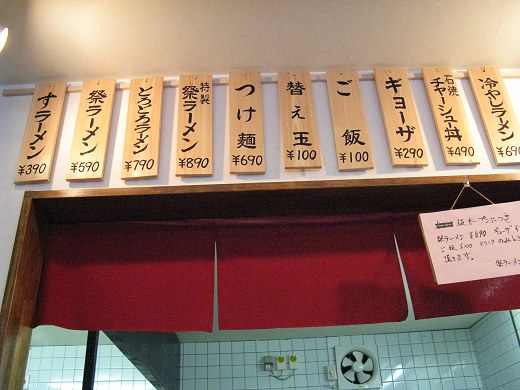 すラーメン
¥390
祭ラーメン
¥590
とろとろラーメン
¥790
特製
祭ラーメン
¥890
つけ麺
¥690
替え玉
¥100
ご飯
¥100
ギョーザ
¥290
石焼
チャーシュー丼
¥490
冷やしラーメン
¥690
仮オープンにつき
祭ラーメン ¥590 ギョーザ
ご飯 ¥100 のみと
頂きます。
祭ラーメン